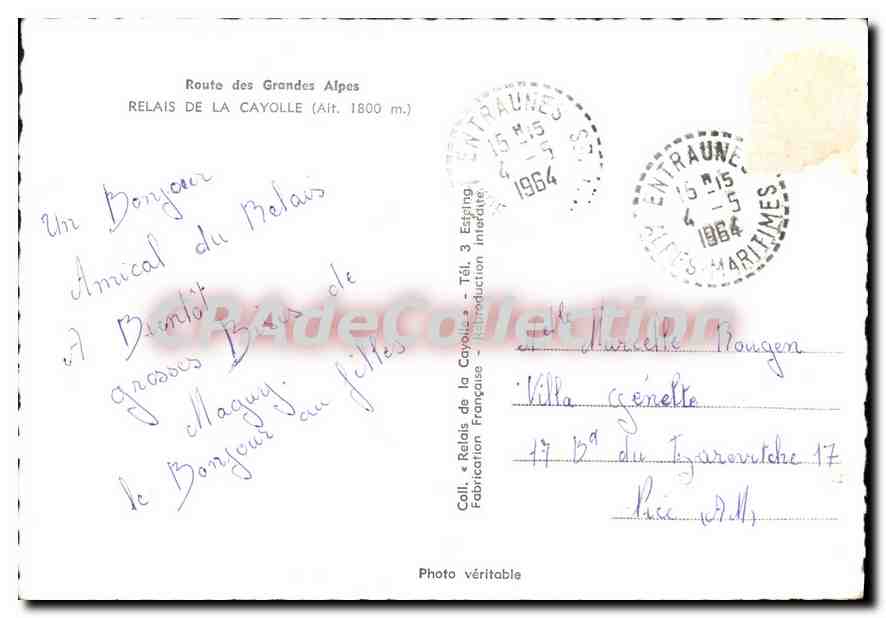 Route des Grandes Alpes
RELAIS DE LA CAYOLLE (Alt. 1800 m.)
Un Bonjour
Amical du Relais
A Bientôt
grosses Bises de
Maguy.
le Bonjour au filles
Coll. « Relais de la Cayolle » - Tél. 3 Esteing
Fabrication Française - Reproduction interdite
ENTRAUNES
15 H 15
4 - 5
1964
ENTRAUNES
15 H 15
4 - 5
1964
ALPES-MARITIMES
CPAdeCollection
Melle Marcelle Rougen
Villa Génette
17 Bd du Tzarevitche 17
Nice (AM)
Photo véritable